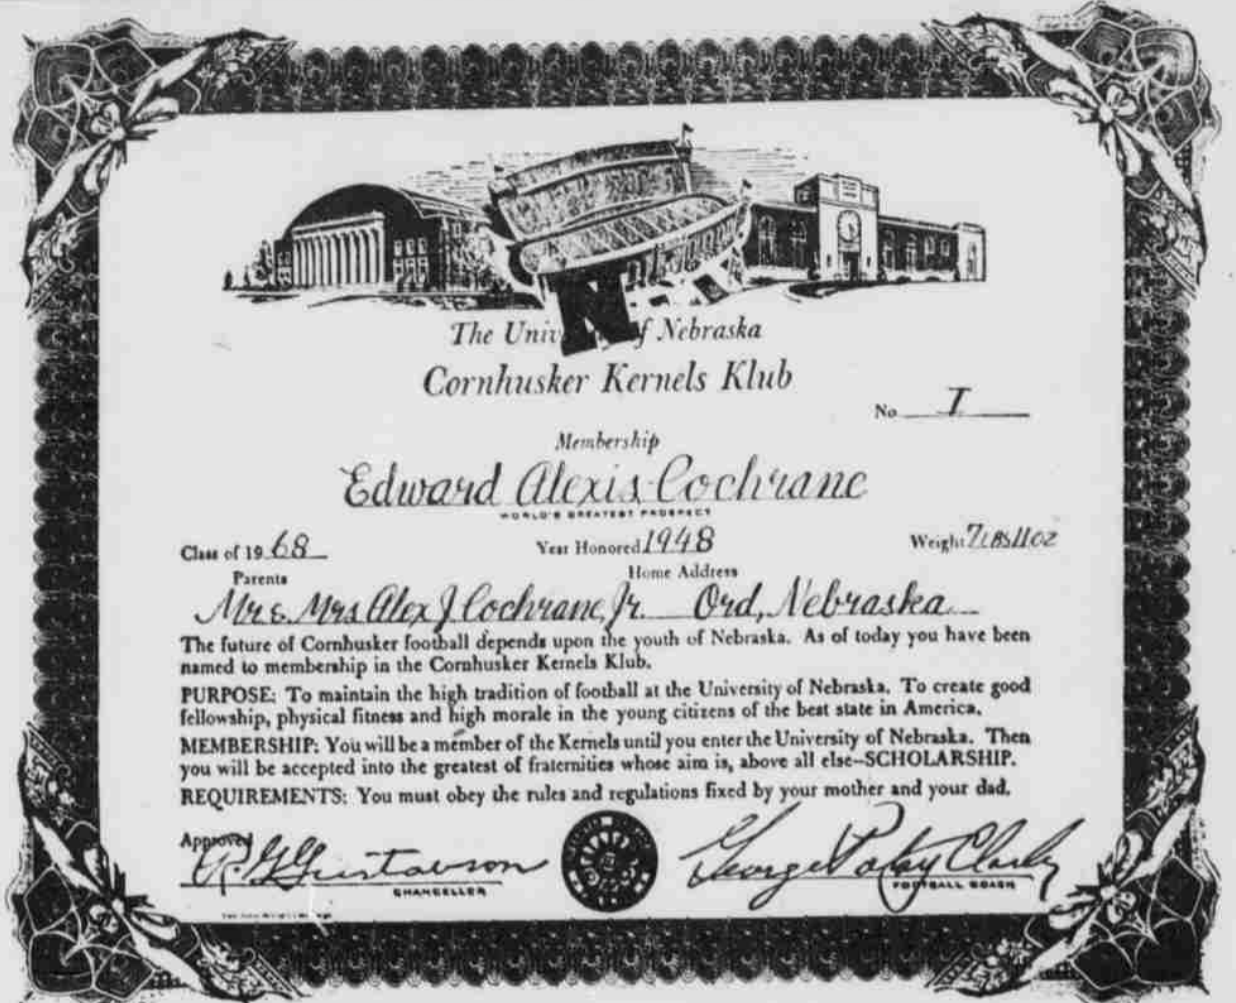 The Univ of Nebraska
Cornhusker Kernels Klub
No I
Membership
Edward Alexis Cochrane
WORLD'S GREATEST PROSPECT
Class of 1968 Year Honored 1948 Weight 7LBS11OZ
Parents Home Address
Mr & Mrs Alex J Cochrane, Jr. Ord, Nebraska
The future of Cornhusker football depends upon the youth of Nebraska. As of today you have been
named to membership in the Cornhusker Kernels Klub.
PURPOSE: To maintain the high tradition of football at the University of Nebraska. To create good
fellowship, physical fitness and high morale in the young citizens of the best state in America.
MEMBERSHIP: You will be a member of the Kernels until you enter the University of Nebraska. Then
you will be accepted into the greatest of fraternities whose aim is, above all else--SCHOLARSHIP.
REQUIREMENTS: You must obey the rules and regulations fixed by your mother and your dad.
Approved
R. G. Gustavson George Potsy Clark
CHANCELLOR FOOTBALL COACH